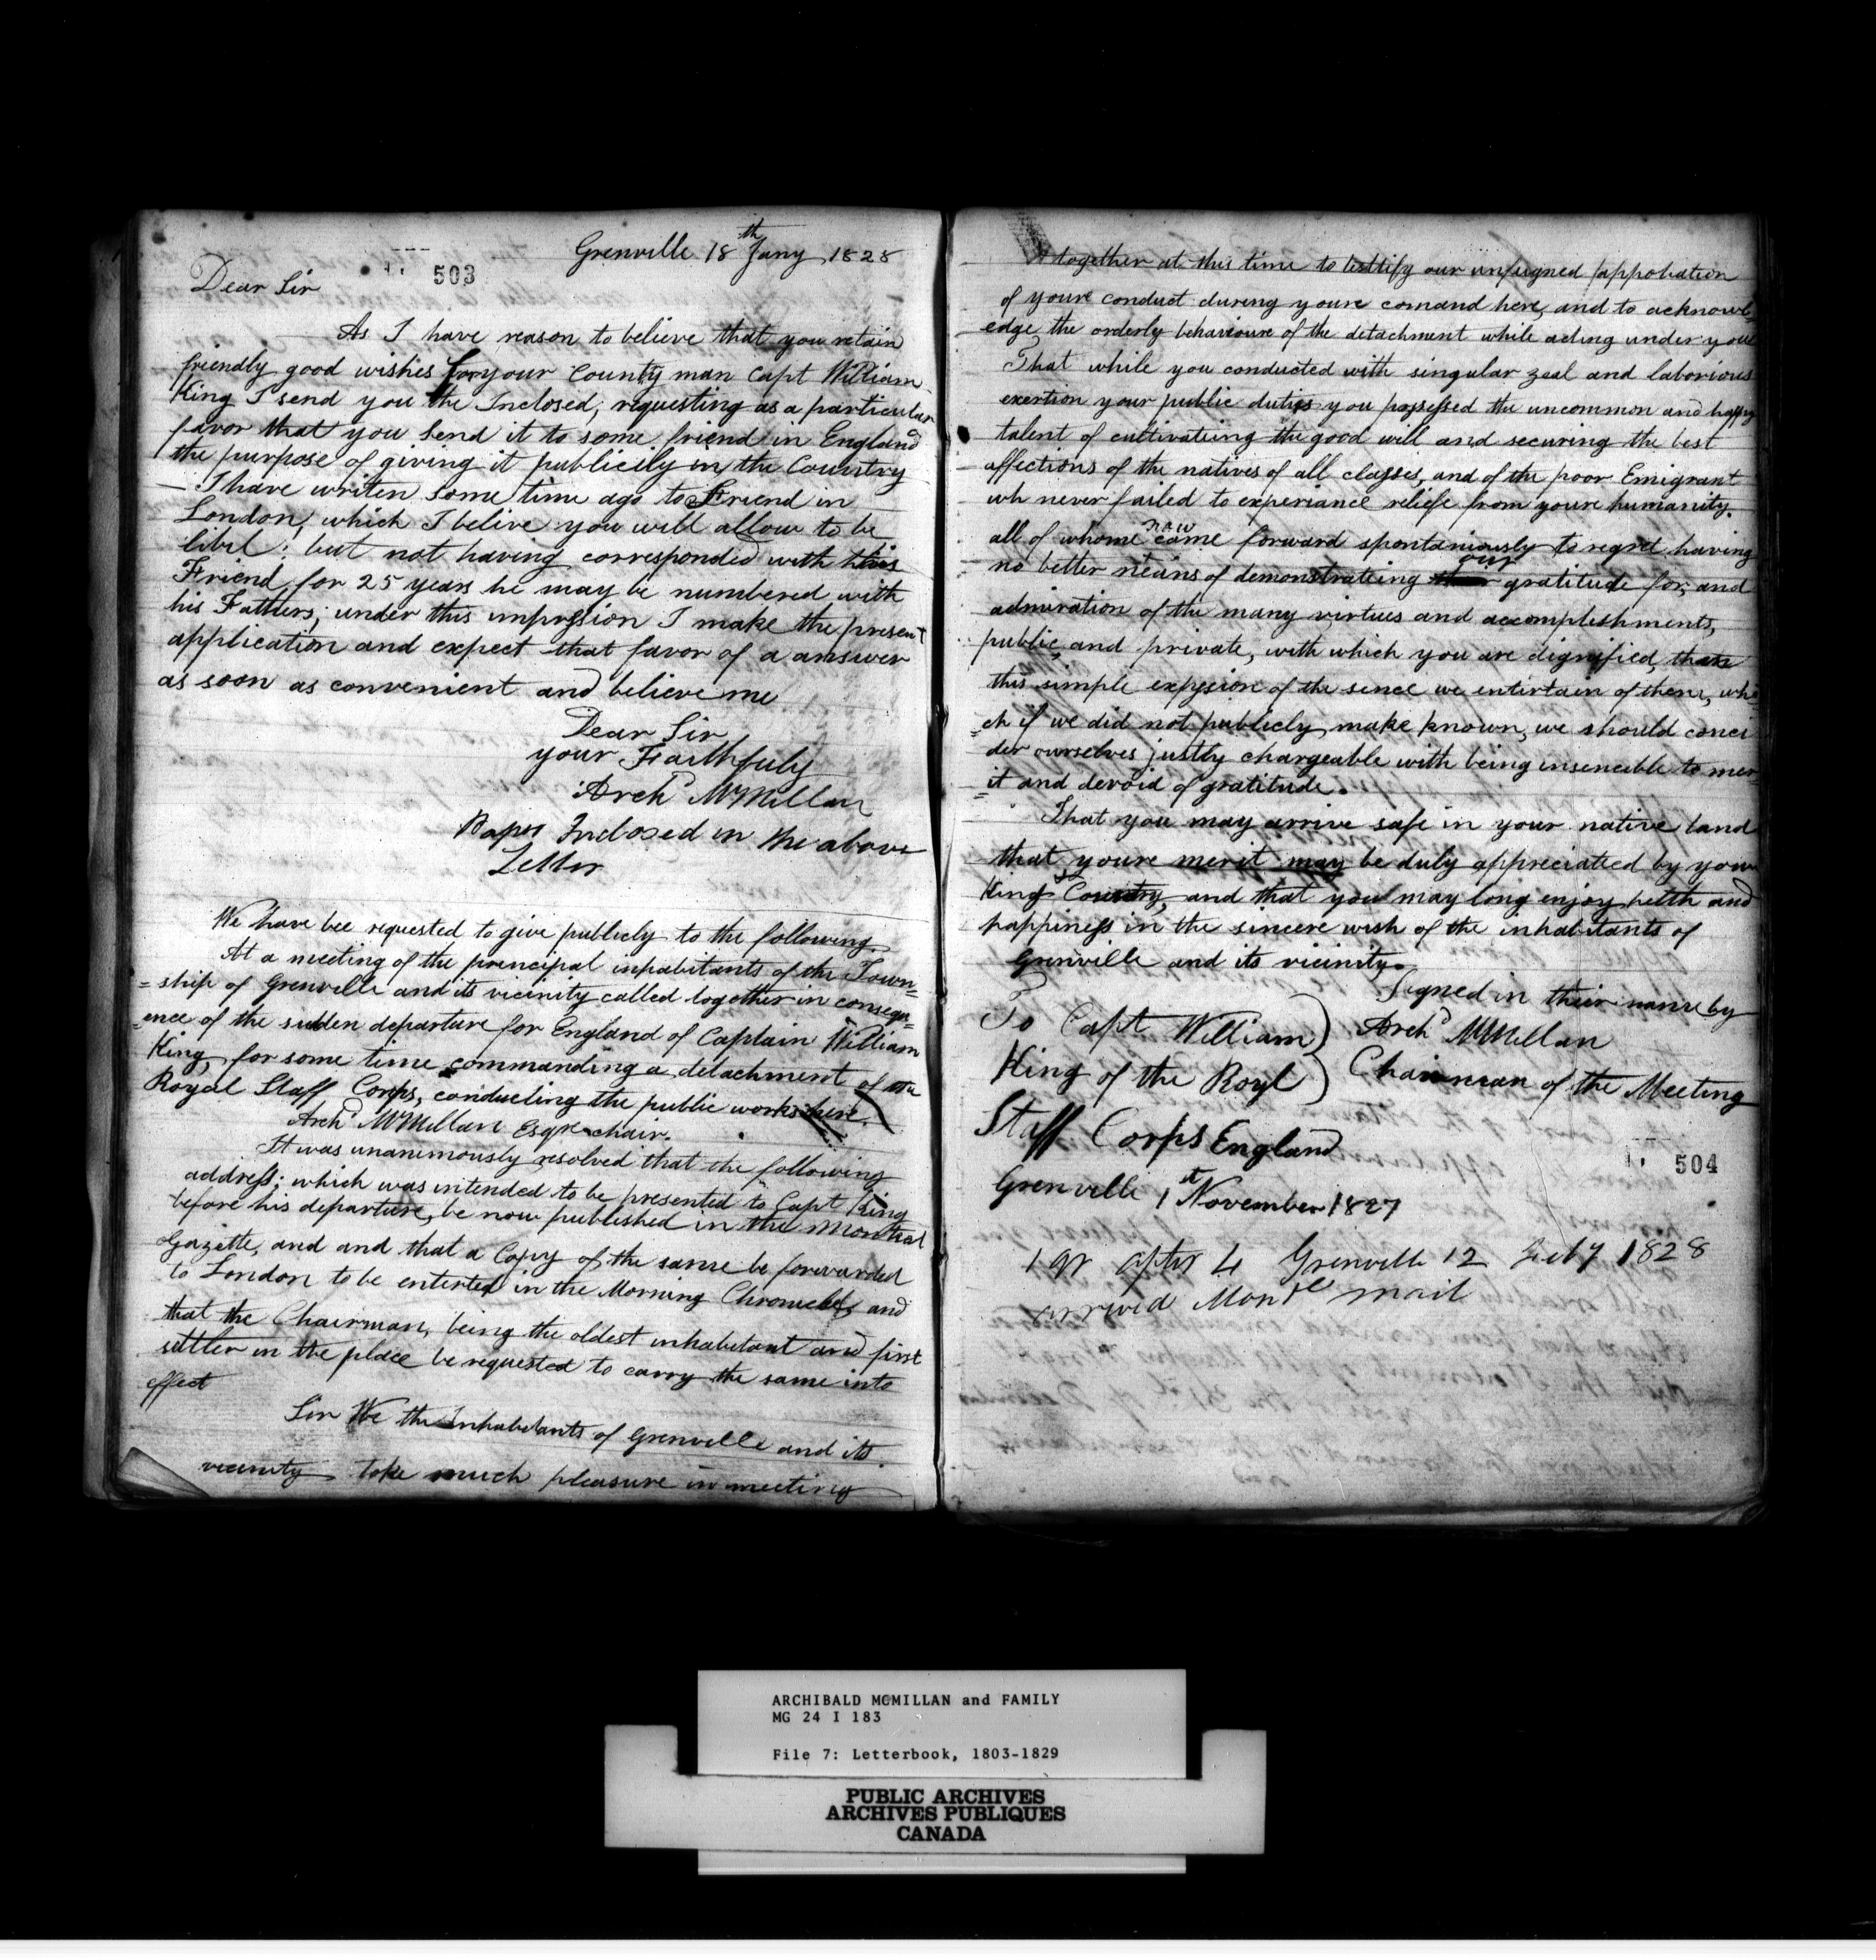 Grenville 18th Jany 1828
503
Dear Sir
As I have reason to believe that you retain
friendly good wishes for your County man Capt William
King I send you the Inclosed, requesting as a particular
favor that you Send it to some friend in England
the purpose of giving it publicily in the Country
I have writen some time ago to a Friend in
London, which I belive you will allow to be
libil; but not having corresponded with this
Friend for 25 years he may be numbered with
his Fathers; under this impression I make the present
application and expect that favor of a answer
as soon as convenient and believe me
Dear Sir
your Faithfuly
Archd McMillan
Paper Inclosed in the above
Letter
We have bee requested to give publicly to the following
At a meeting of the principal inhabitants of the Town=
=ship of Grenville and its vicinity called together in consequ=
=ence of the sudden departure for England of Captain William
King, for some time commanding a detachment of the
Royal Staff Corps, conducting the public works here.
Archd McMillan Esqre chair.
It was unanimously resolved that the following
address; which was intended to be presented to Capt King
before his departure, be now published in the Montreal
Gazette, and and that a Copy of the same be forwarded
to London to be enterted in the Morning Chronicle, and
that the Chairman, being the oldest inhabitant and first
settler in the place be requested to carry the same into
effect
Sir We the Inhabitants of Grenville and its
vicinity take much pleasure in meeting
together at this time to testtify our unfeigned approbation
of youre conduct during youre comand here, and to acknowl=
edge the orderly behavioure of the detachment while acting under you
That while you conducted with singular zeal and laborious
exertion your public duties you possessed the uncommon and happy
talent of cultivateing the good will and securing the best
affections of the natives of all classes, and of the poor Emigrant
wh never failed to experiance reliefe from youre humanity.
all of whome now come forward spontaniously to regret having
no better means of demonstrateing our gratitude for, and
admiration of the many virtues and accomplishments,
public, and private, with which you are dignified, than
this simple expression of the sence we entirtain of them, whi=
=ch if we did not publicly make known, we should conci
der ourselves justly chargeable with being insencible to mer=
=it and devoid of gratitude.
That you may arrive safe in your native land
that youre merit may be duly appreciated by your
King & Country, and that you may long enjoy helth and
happiness in the sincere wish of the inhabitants of
Grenville and its vicinity.
Signed in their name by
To Capt William ) Archd McMillan
King of the Royl ) Chairman of the Meeting
Staff Corps England
504
Grenville 1st November 1827
1 qr after 4 Grenville 12 1828
arrived Montl mail
ARCHIBALD MCMILLAN and FAMILY
MG 24 I 183
File 7: Letterbook, 1803-1829
PUBLIC ARCHIVES
ARCHIVES PUBLIQUES
CANADA